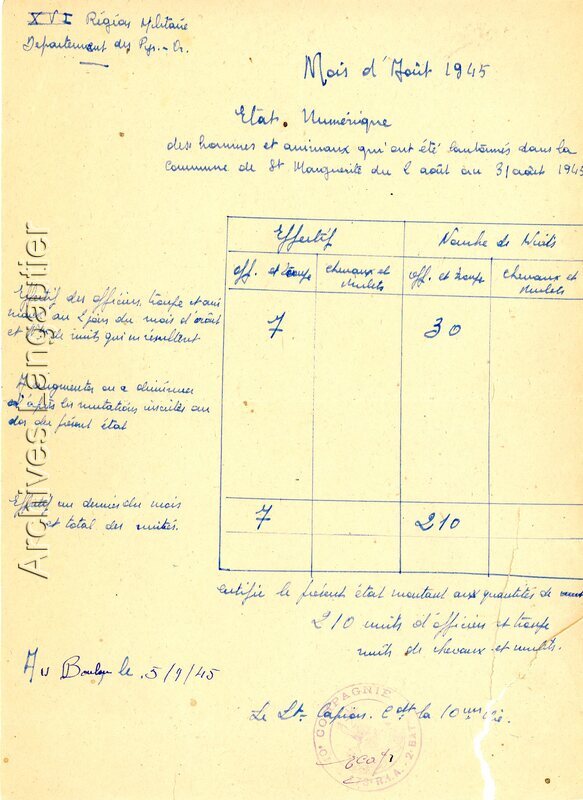 XVI Région Militaire
Département des Pys.-Or.
Mois d'Août 1945
Etat Numérique
des hommes et animaux qui ont été cantonnés dans la
Commune de St Marguerite du 2 août au 31 août 1945
Effectif
Nombre de Nuits
Off. et troupe
Chevaux et Mulets
Off. et troupe
Chevaux et Mulets
Effectif des officiers, troupe et ani
maux au 2 jours du mois d'août
et Nb de nuits qui en résultent
7
30
A augmenter ou a diminuer
d'après les mutations inscrites au
dos du présent état
Effectif au dernier du mois
et total des unités.
7
210
Certifie le présent état montant aux quantités de
210 nuits d'officiers et troupe
nuits de chevaux et mulets.
Au Boulou le 5/9/45
Le Lt. Capion. Cdt la 10ème Cie.
10e COMPAGNIE
R.I.A. - 2e BAT
Archives Lengautier